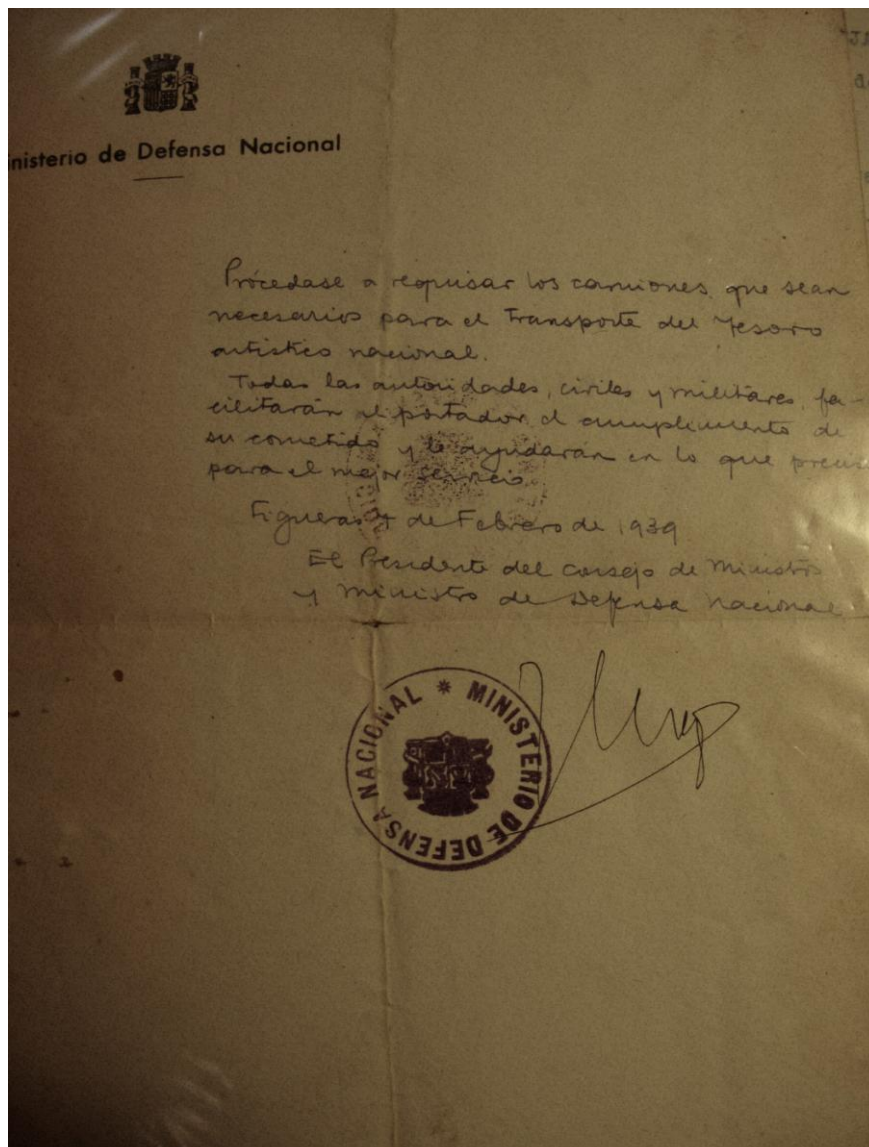 inisterio de Defensa Nacional
Prócedase a requisar los camiones que sean
necesarios para el transporte del Tesoro
artístico nacional.
Todas las autoridades, civiles y militares, fa-
cilitarán al portador el cumplimiento de
su cometido y le ayudarán en lo que precis
para el mejor servicio.
Figueras 4 de Febrero de 1939
El Presidente del Consejo de Ministros
y Ministro de Defensa Nacional
MINISTERIO DE DEFENSA NACIONAL